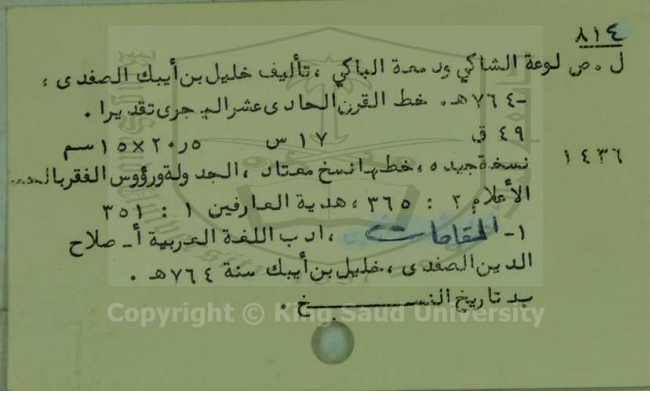 ٨١٤
ل ٠ ص لوعة الشاكي ودمعة الباكي ، تأليف خليل بن أيبك الصفدى ،
-٧٦٤هـ. خط القرن الحادى عشر الهجرى تقديرا .
٤٩ ق ١٧ س ٢٠٫٥×١٥ سم
١٤٣٦ نسخة جيده ، خطها نسخ معتاد ، الجدولة ورؤوس الفقر
الأعلام ٢ : ٣٦٥ ، هدية العارفين ١ : ٣٥١
١- المقامات ، ادب اللغة العربية أ- صلاح
الدين الصفدى ، خليل بن أيبك سنة ٧٦٤ هـ .
بـ تاريخ النسـخ .
Copyright © King Saud University